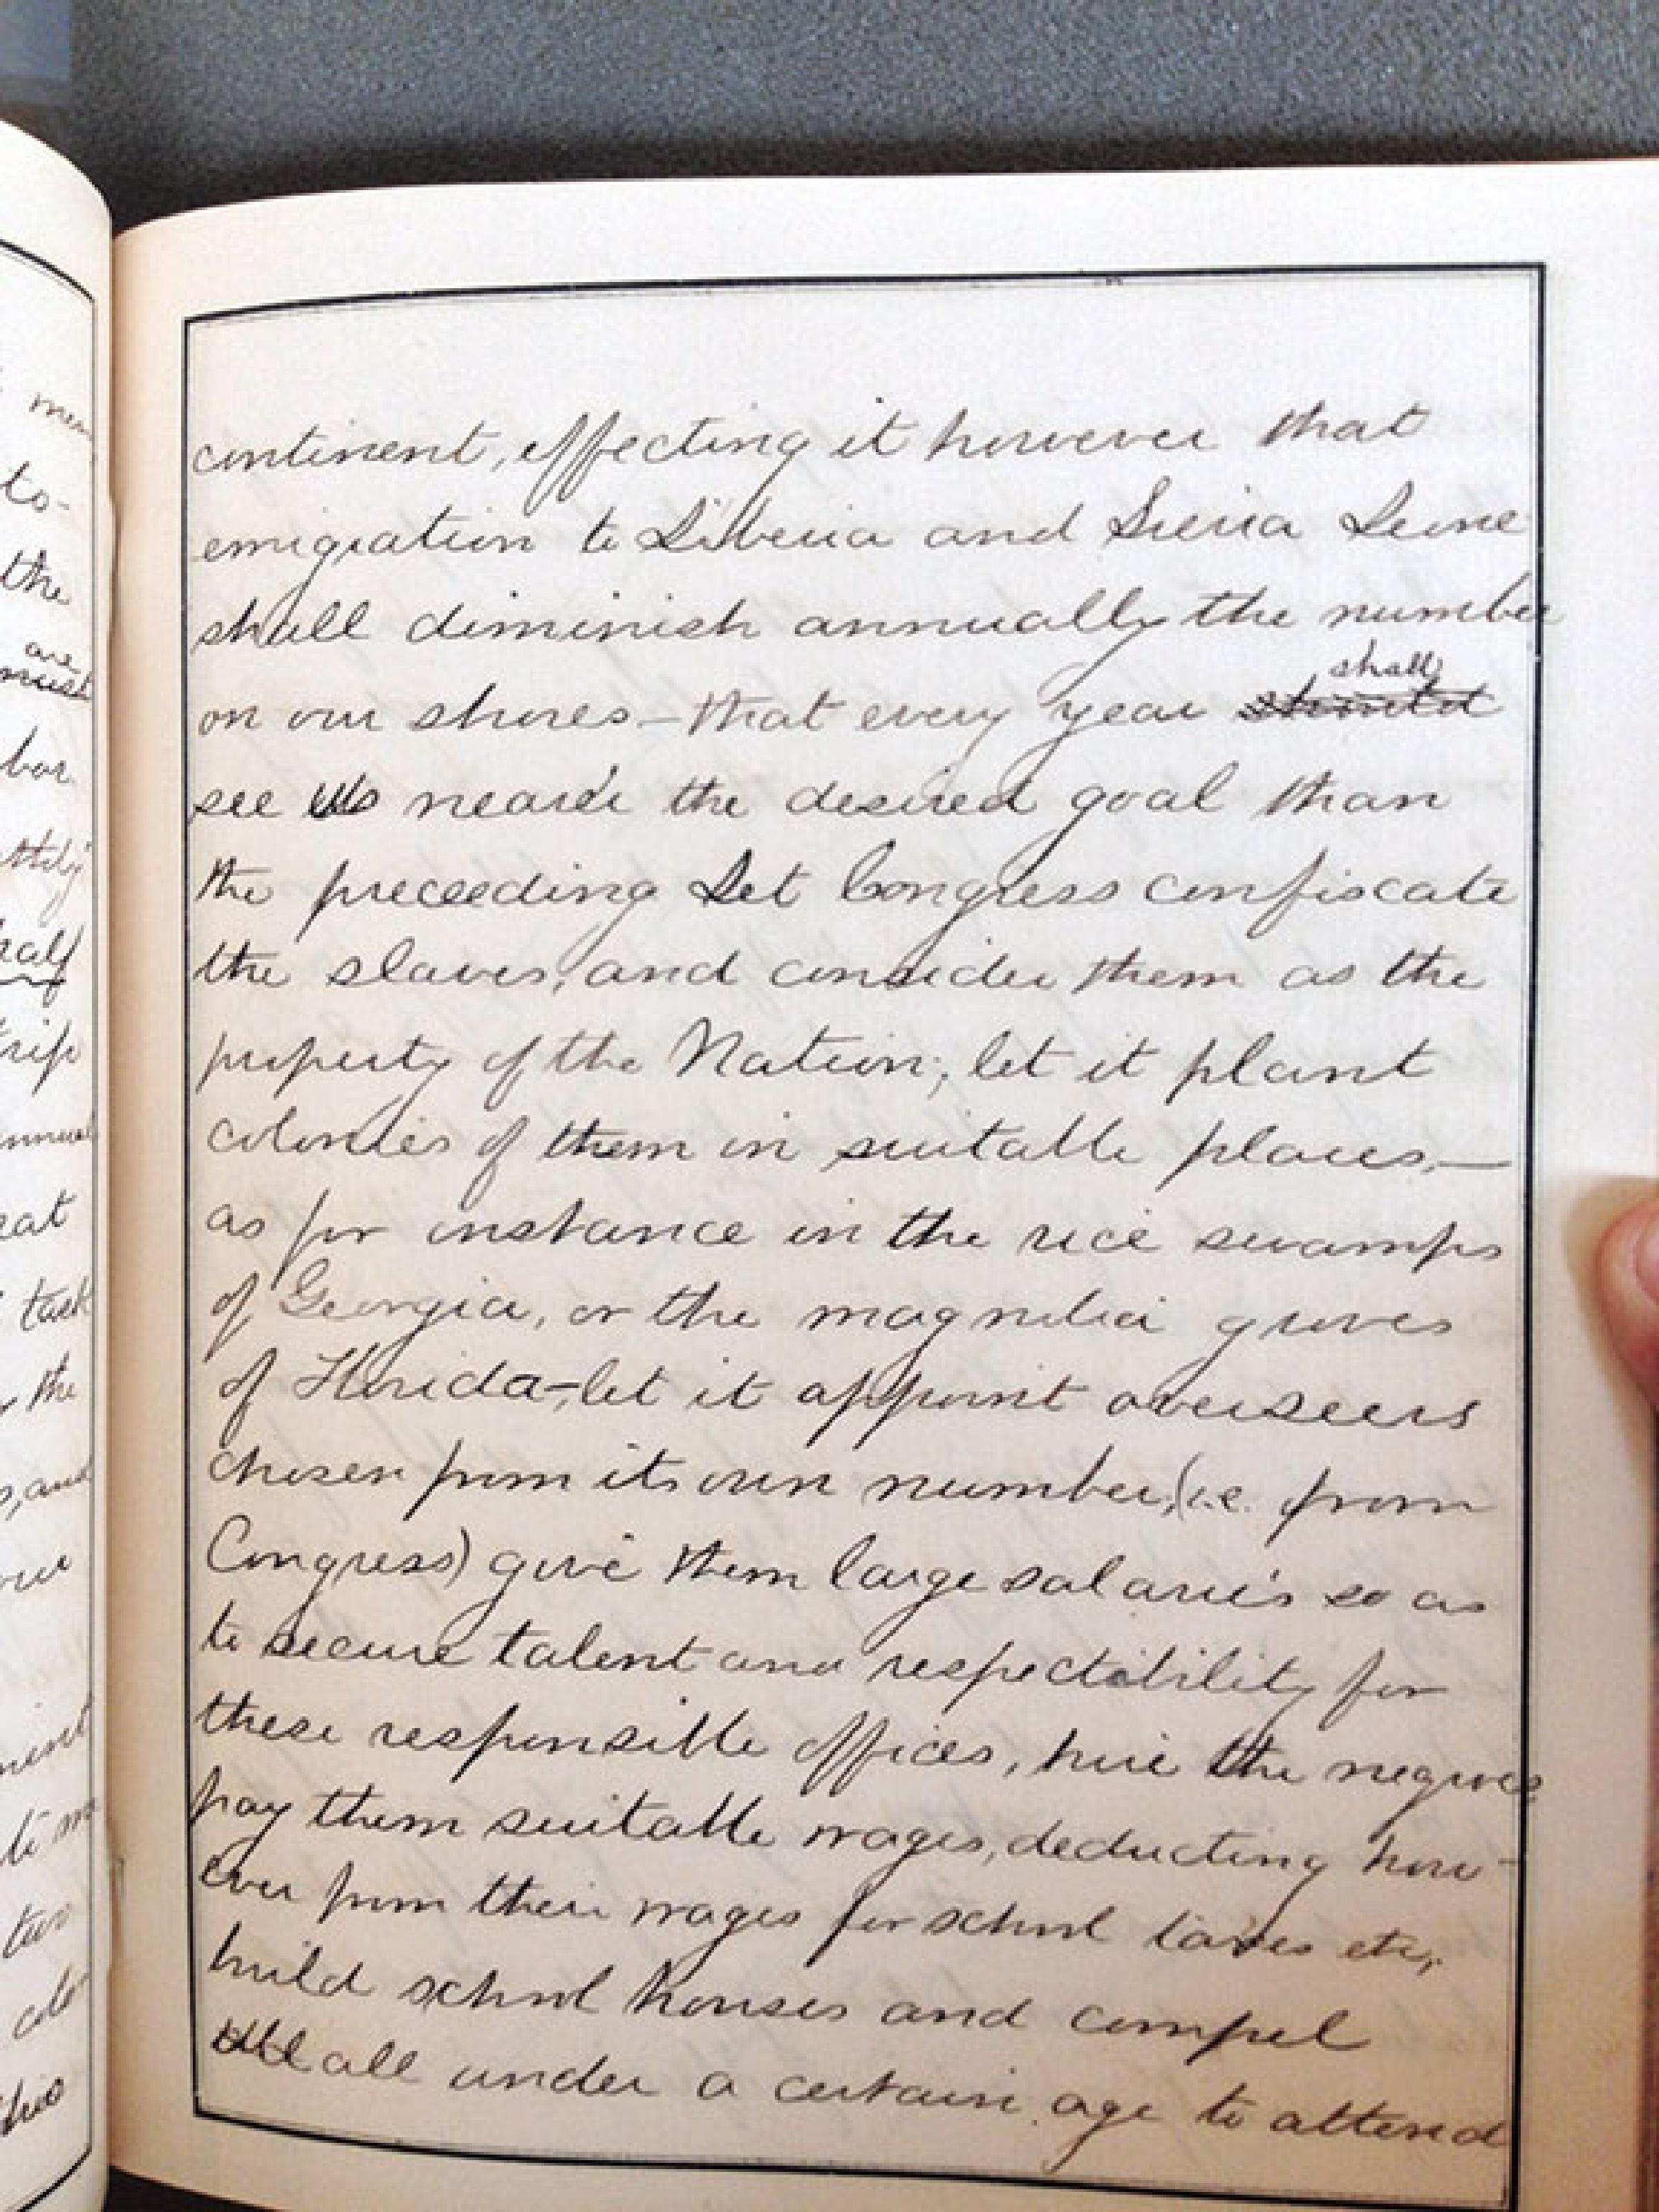 mea
to-
the
are
must
bor
ttily
half
rip
annual
eat
task
the
s, and
our
ment
to m
this
continent, effecting it however that
emigration to Liberia and Sierra Leone
shall diminish annually the number
shall
on our shores – that every year should
see us nearer the desired goal than
the preceeding Let Congress confiscate
the slaves, and consider them as the
property of the Nation; let it plant
colonies of them in suitable places, —
as for instance in the rice swamps
of Georgia, or the magnolia groves
of Florida – let it appoint overseers
chosen from its own number, (i.e. from
Congress) give them large salaries so as
to secure talent and respectibility for
these responsible offices, hire the negroes
pay them suitable wages, deducting how-
ever from their wages for school taxes etc,.
build school houses and compel
all all under a certain age to attend